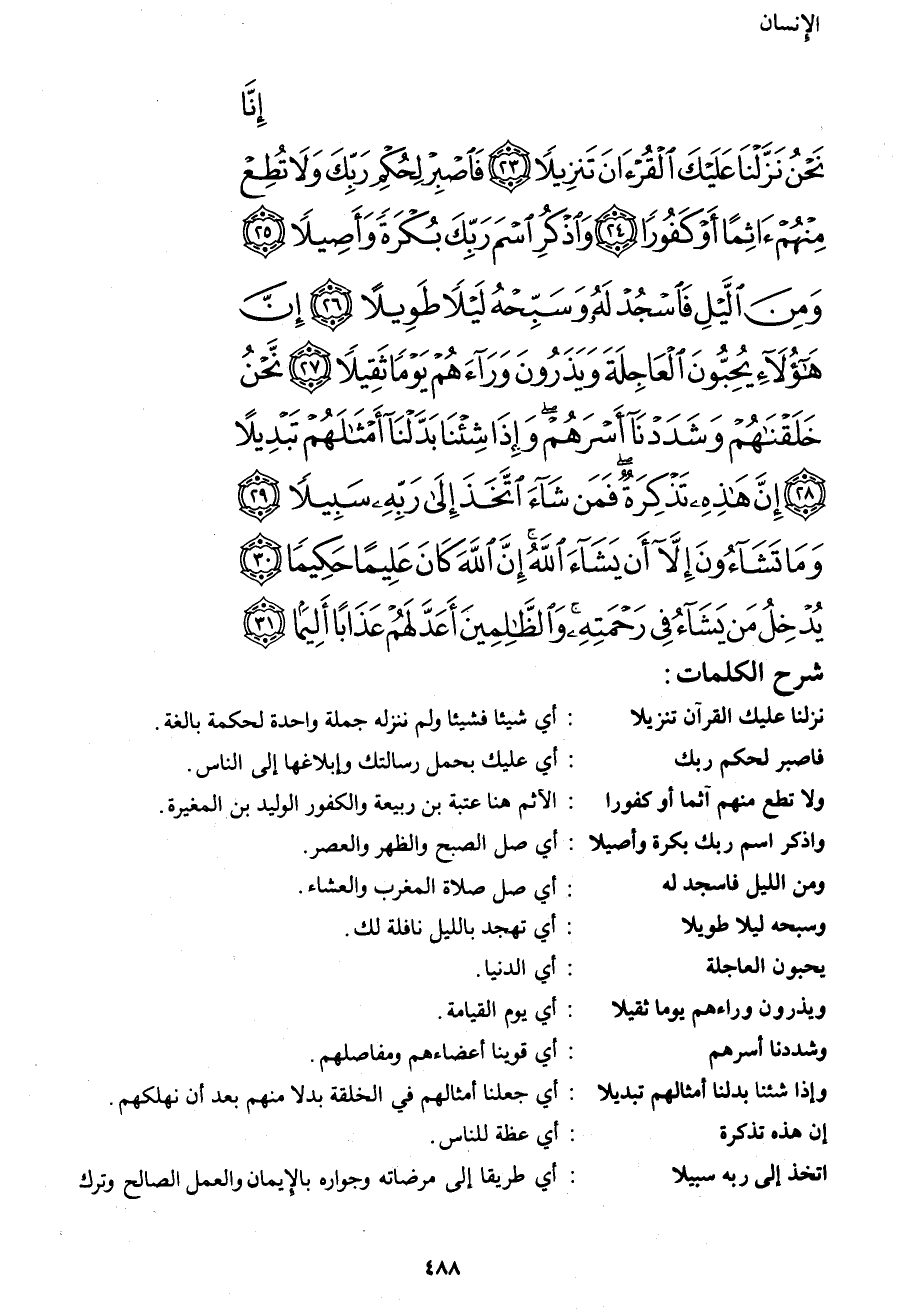 الإنسان
إِنَّا
نَحْنُ نَزَّلْنَا عَلَيْكَ ٱلْقُرْءَانَ تَنزِيلًا ﴿٢٣﴾ فَٱصْبِرْ لِحُكْمِ رَبِّكَ وَلَا تُطِعْ
مِنْهُمْ ءَاثِمًا أَوْ كَفُورًا ﴿٢٤﴾ وَٱذْكُرِ ٱسْمَ رَبِّكَ بُكْرَةً وَأَصِيلًا ﴿٢٥﴾
وَمِنَ ٱلَّيْلِ فَٱسْجُدْ لَهُۥ وَسَبِّحْهُ لَيْلًا طَوِيلًا ﴿٢٦﴾ إِنَّ
هَٰٓؤُلَآءِ يُحِبُّونَ ٱلْعَاجِلَةَ وَيَذَرُونَ وَرَآءَهُمْ يَوْمًا ثَقِيلًا ﴿٢٧﴾ نَّحْنُ
خَلَقْنَٰهُمْ وَشَدَدْنَآ أَسْرَهُمْ ۖ وَإِذَا شِئْنَا بَدَّلْنَآ أَمْثَٰلَهُمْ تَبْدِيلًا
﴿٢٨﴾ إِنَّ هَٰذِهِۦ تَذْكِرَةٌ ۖ فَمَن شَآءَ ٱتَّخَذَ إِلَىٰ رَبِّهِۦ سَبِيلًا ﴿٢٩﴾
وَمَا تَشَآءُونَ إِلَّآ أَن يَشَآءَ ٱللَّهُ ۚ إِنَّ ٱللَّهَ كَانَ عَلِيمًا حَكِيمًا ﴿٣٠﴾
يُدْخِلُ مَن يَشَآءُ فِى رَحْمَتِهِۦ ۚ وَٱلظَّٰلِمِينَ أَعَدَّ لَهُمْ عَذَابًا أَلِيمًۢا ﴿٣١﴾
شرح الكلمات :
نزلنا عليك القرآن تنزيلا : أي شيئا فشيئا ولم ننزله جملة واحدة لحكمة بالغة .
فاصبر لحكم ربك : أي عليك بحمل رسالتك وإبلاغها إلى الناس .
ولا تطع منهم آثما أو كفورا : الآثم هنا عتبة بن ربيعة والكفور الوليد بن المغيرة .
واذكر اسم ربك بكرة وأصيلا : أي صل الصبح والظهر والعصر.
ومن الليل فاسجد له : أي صل صلاة المغرب والعشاء .
وسبحه ليلا طويلا : أي تهجد بالليل نافلة لك .
يحبون العاجلة : أي الدنيا .
ويذرون وراءهم يوما ثقيلا : أي يوم القيامة .
وشددنا أسرهم : أي قوينا أعضاءهم ومفاصلهم .
وإذا شئنا بدلنا أمثالهم تبديلا : أي جعلنا أمثالهم في الخلقة بدلا منهم بعد أن نهلكهم .
إن هذه تذكرة : أي عظة للناس .
اتخذ إلى ربه سبيلا : أي طريقا إلى مرضاته وجواره بالإيمان والعمل الصالح وترك
٤٨٨